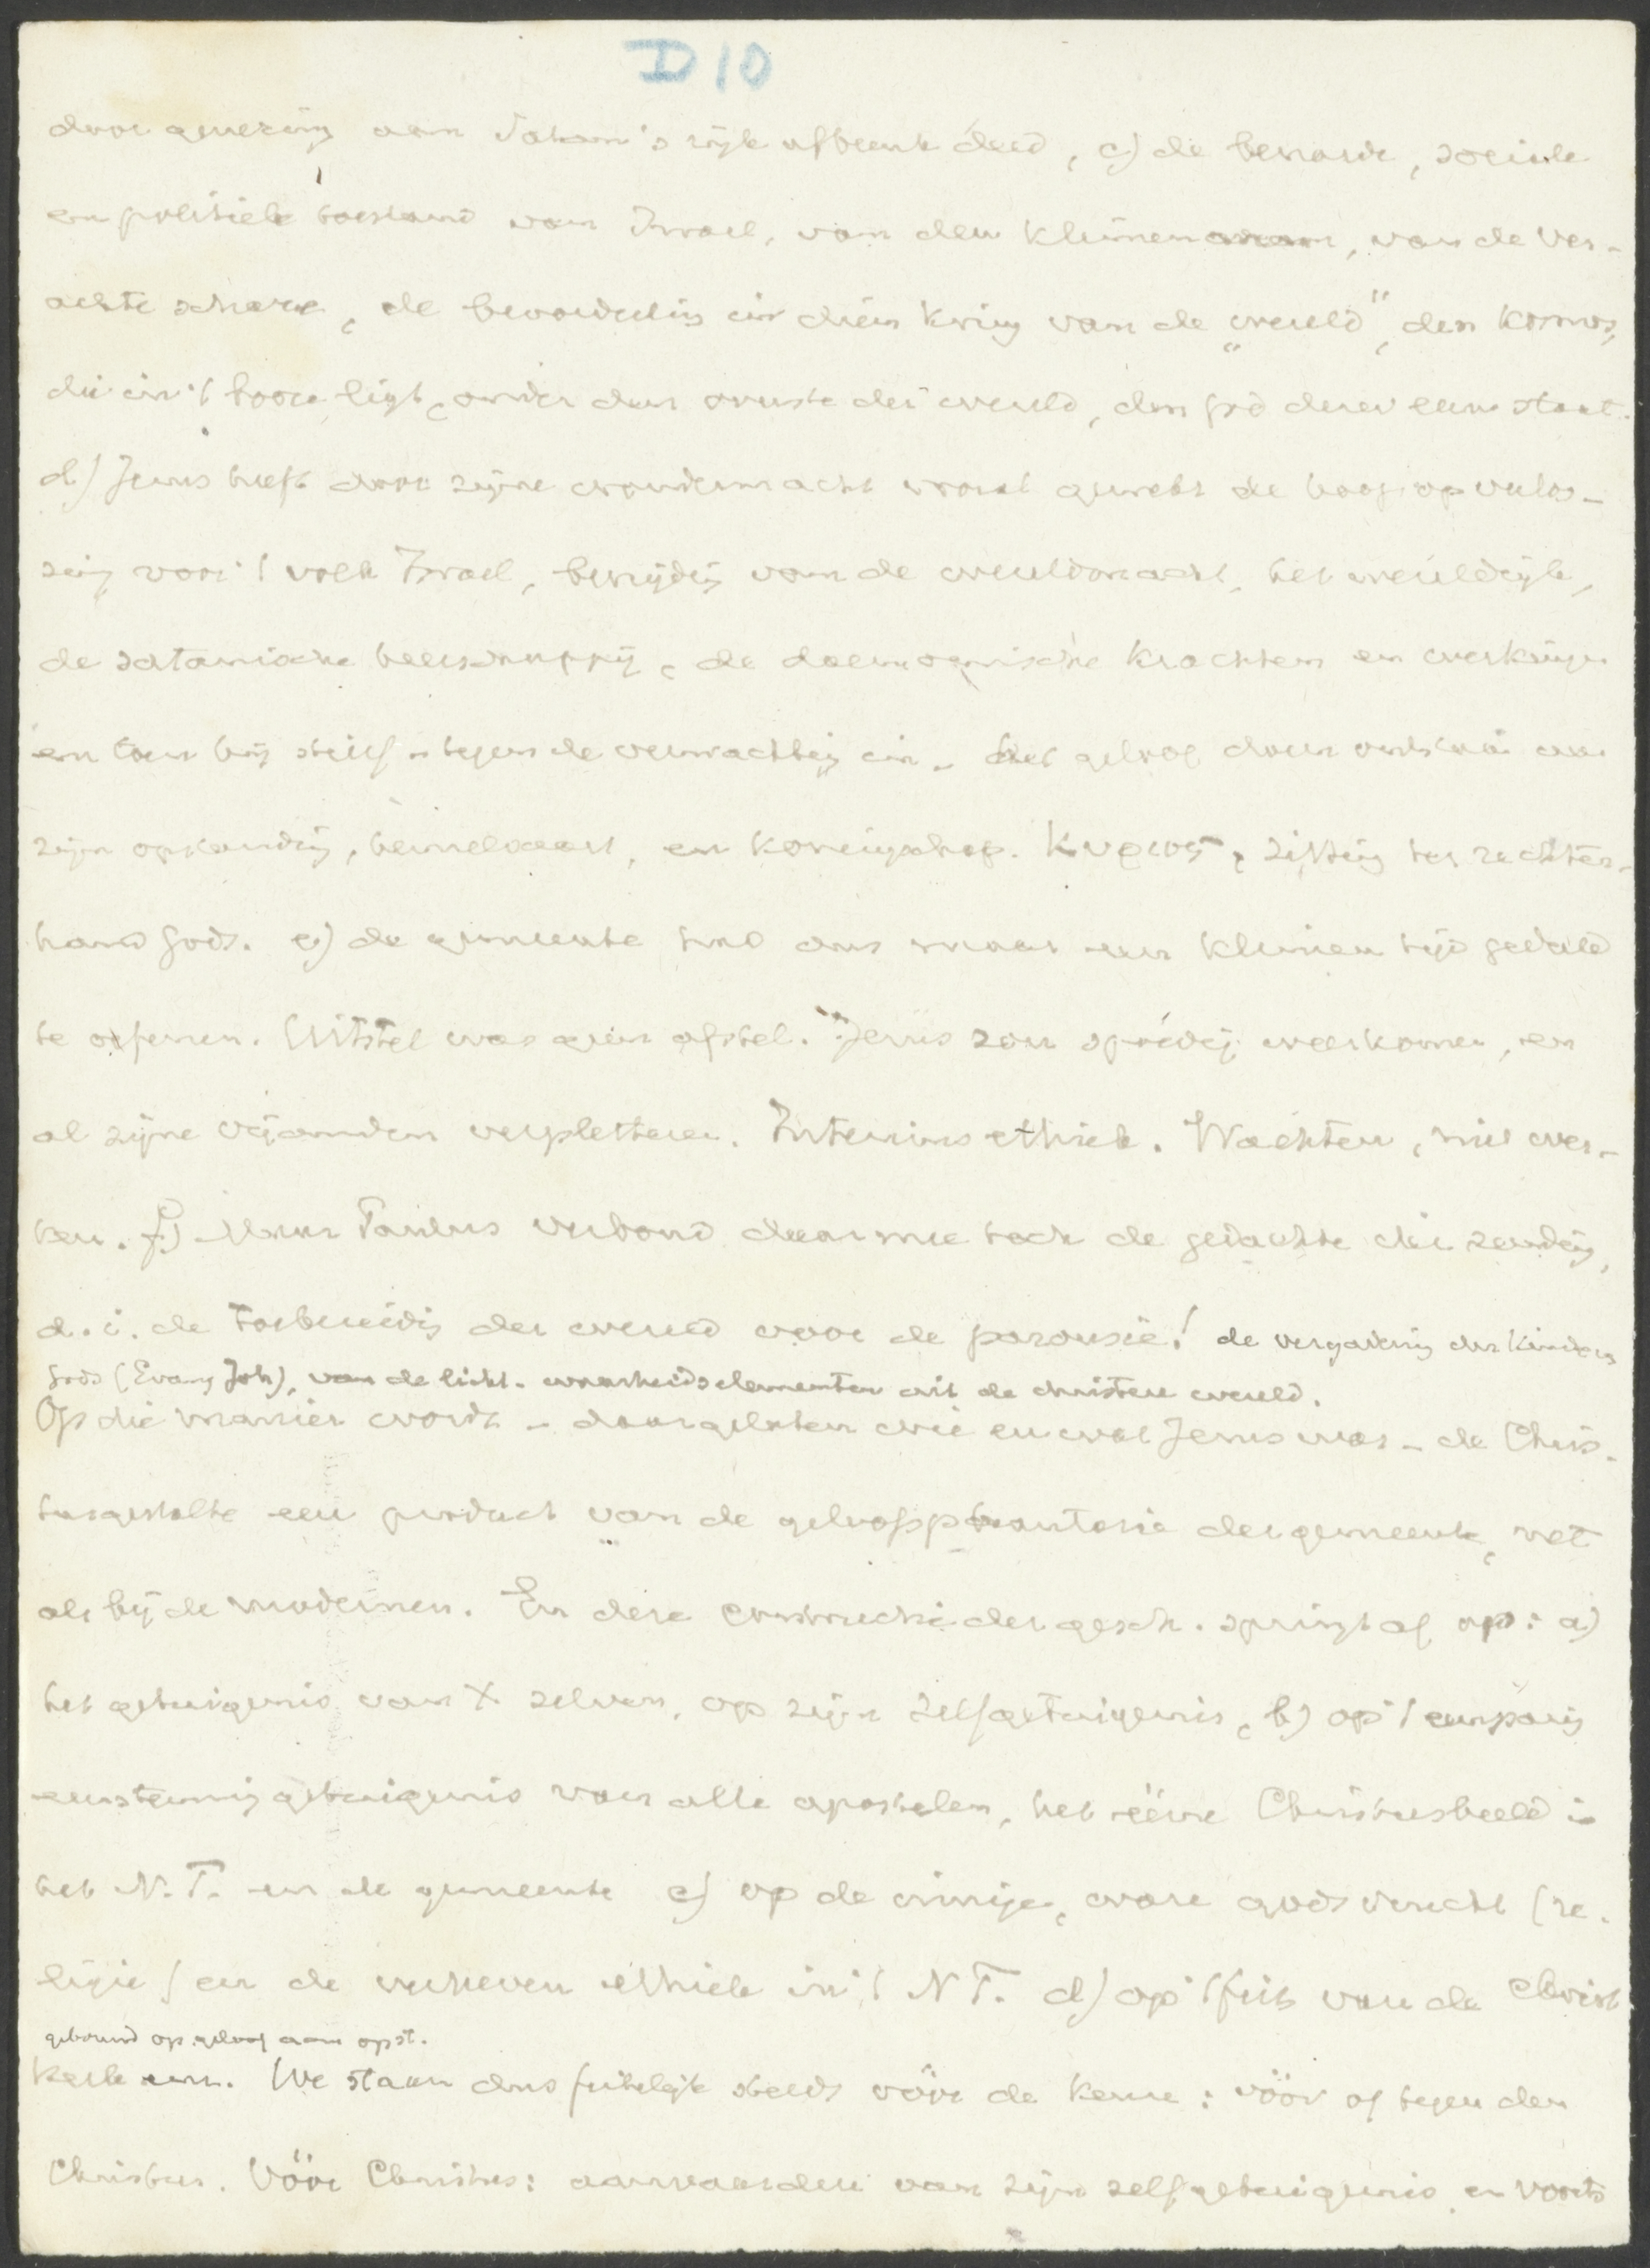 D 10
door genezing aan Satan's rijk afbreuk deed, c) de benarde, sociale
en politieke toestand van Israel, van den kleinen man, van de ver-
achte schare, de beoordeling in dien kring van de „wereld", den kosmos,
die in 't booze ligt, onder den overste der wereld, den god dezer eeuw staat.
d) Jezus heeft door zijne wondermacht vooral gewekt de hoop op verlos-
sing voor 't volk Israel, bevrijding van de wereldmacht, het wereldrijk,
de satanische heerschappij, de daemonische krachten en werkingen
en toen hij stierf - tegen de verwachting in - het geloof doen ontstaan aan
zijn opstanding, hemelvaart, en koningschap. Κυριος, zitting ter rechter-
hand Gods. e) de gemeente had dus maar een kleinen tijd geduld
te oefenen. Uitstel was geen afstel. Jezus zou spoedig weerkomen, en
al zijne vijanden verpletteren. Interims ethiek. Wachten, niet wer-
ken. f) Maar Paulus verbond daarmee toch de gedachte der zending,
d.i. de toebereiding der wereld voor de parousie! de vergadering der kinderen
Gods (Evang Joh), van de licht- waarheidselementen uit de duistere wereld.
Op die manier wordt - daargelaten wie en wat Jezus was - de Chris-
tusgestalte een product van de geloofsphantasie der gemeente, net
als bij de modernen. En deze constructie der gesch. springt af op: a)
het getuigenis van X zelven, op zijn zelfgetuigenis, b) op 't eenparig
eenstemmig getuigenis van alle apostelen, het ééne Christusbeeld in
het N.T. en de gemeente c) op de innige, ware godsvrucht (re-
ligie) en de verheven ethiek in 't N T. d) op 't feit van de Christ.
gebouwd op geloof aan opst.
kerk. We staan dus feitelijk steeds vóór de keuze: vóór of tegen den
Christus. Vóór Christus: aanvaarden van zijn zelfgetuigenis en voorts